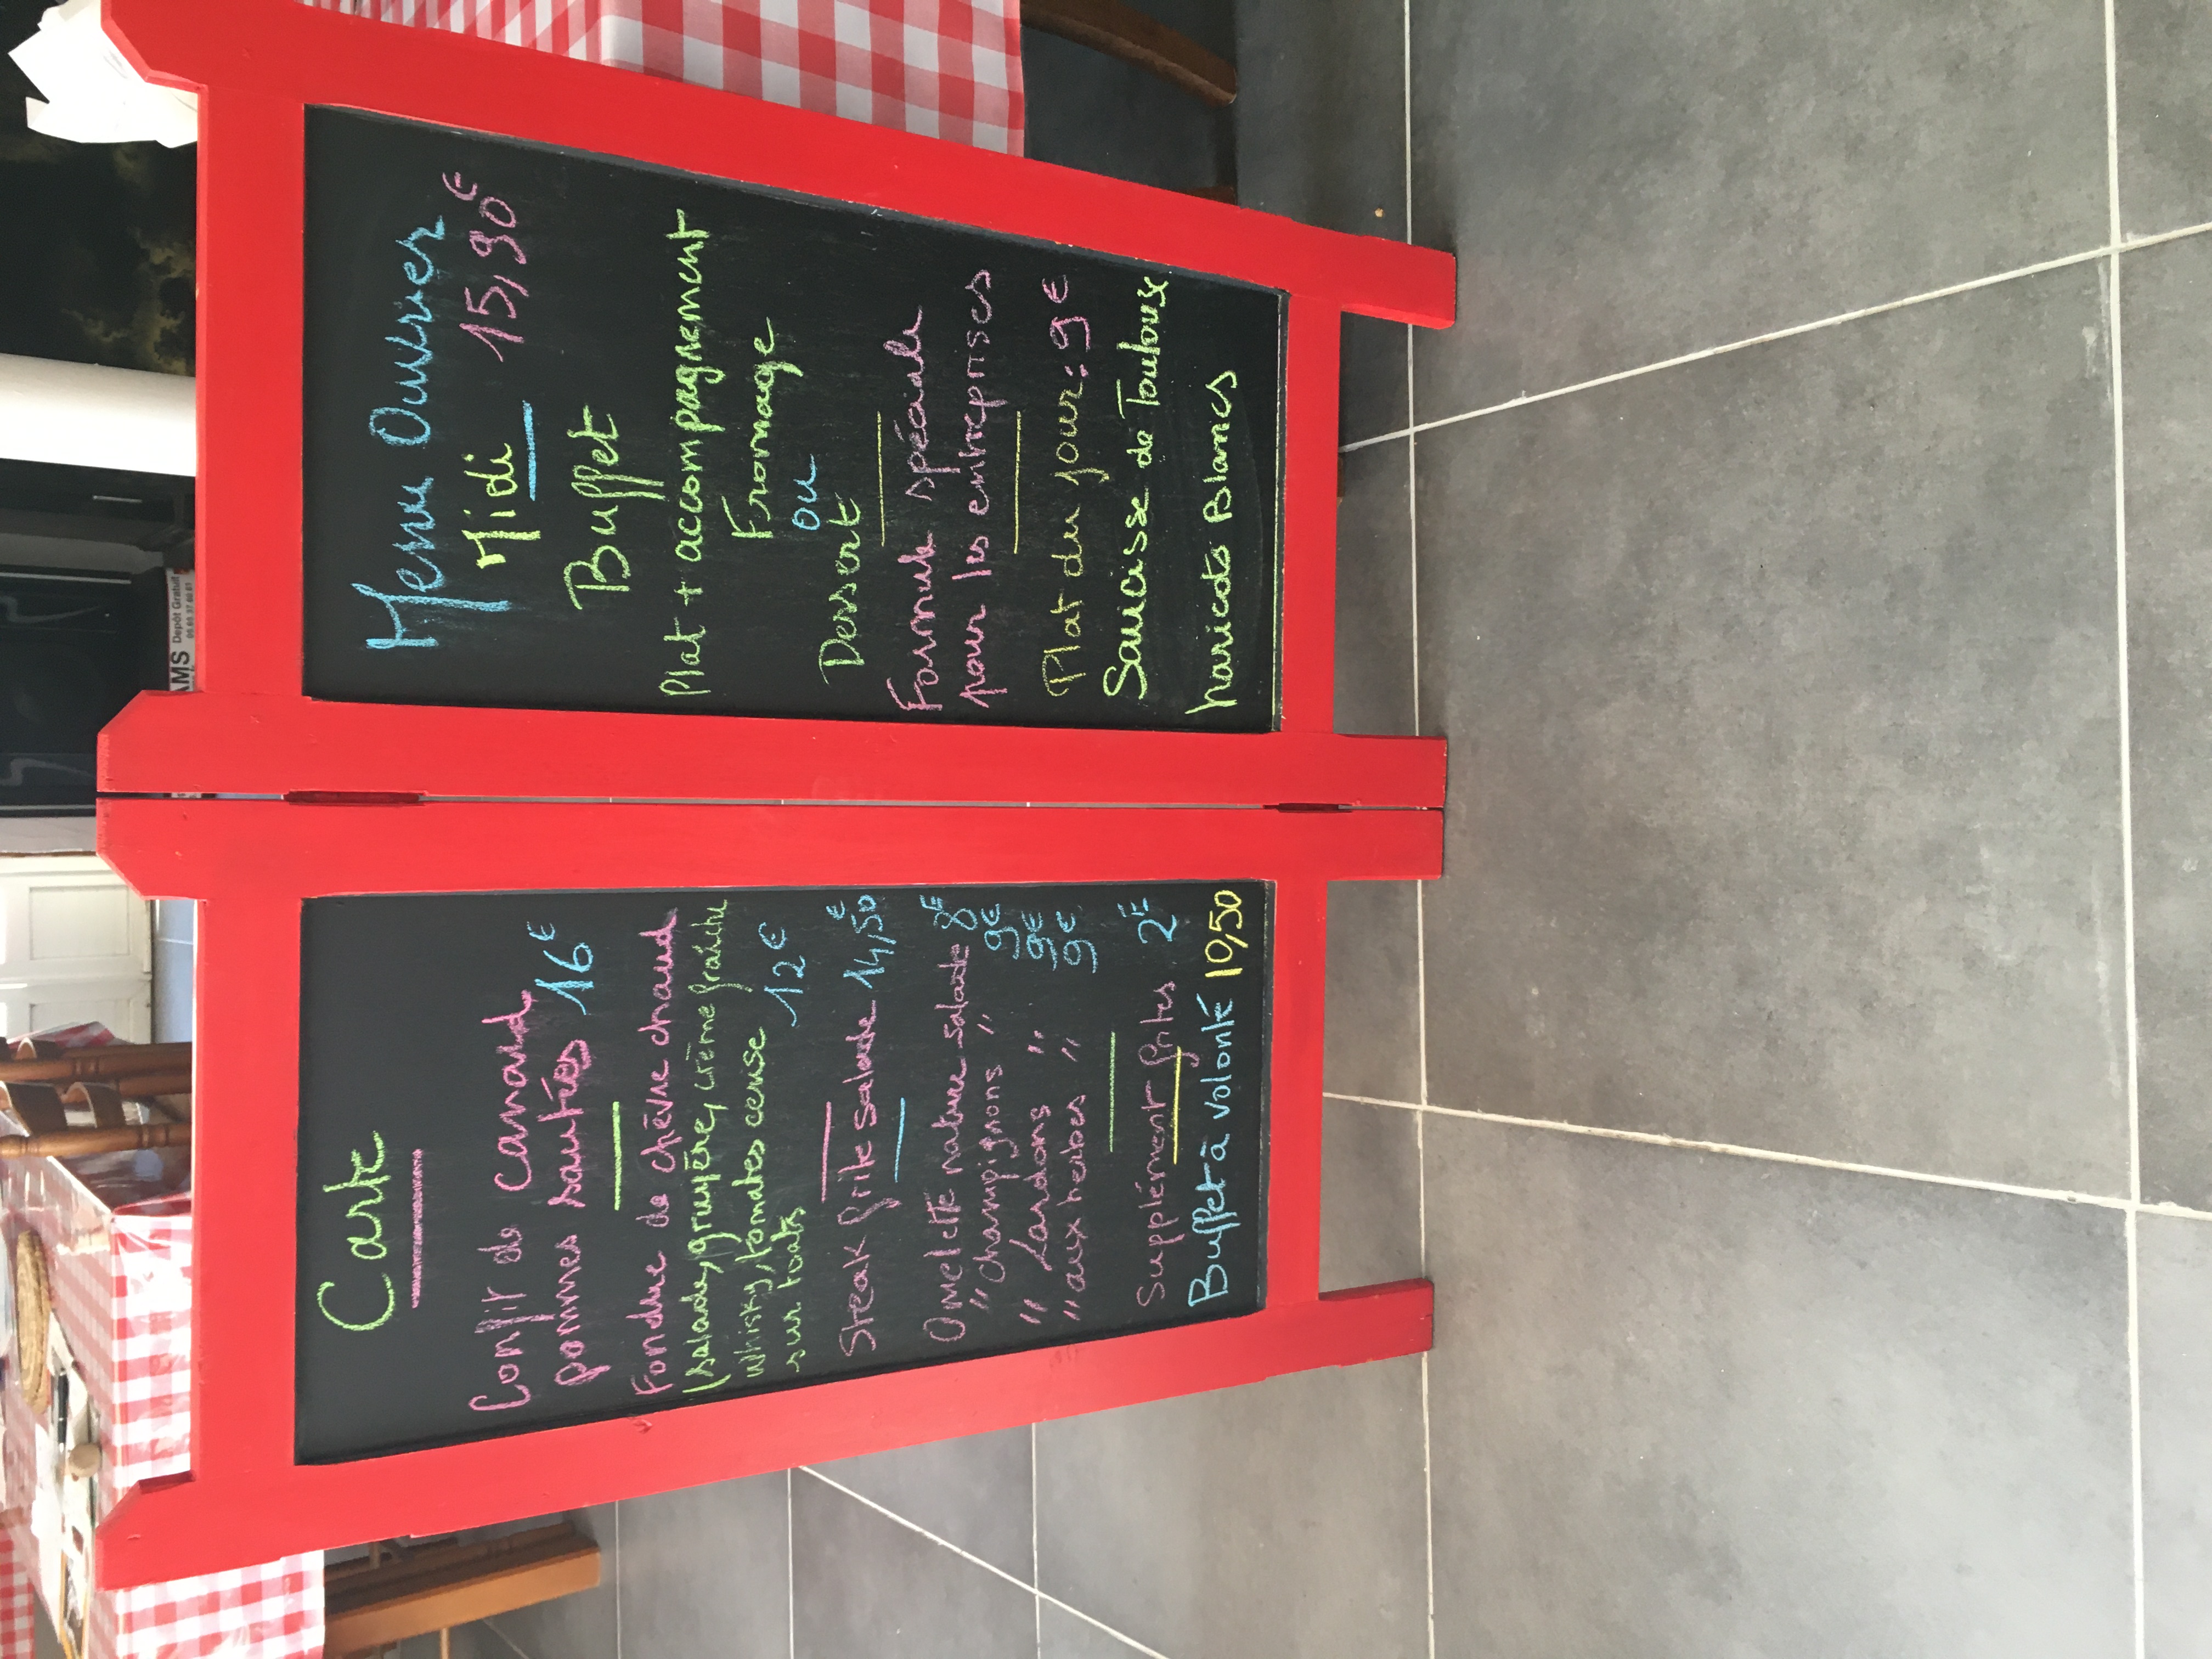 Carte
Confit de canard
pommes sautées 16€
Fondue de chèvre chaud
(salade, gruyère, crème fraîche
whisky, tomates cerise
sur toats 12€
Steak frite salade 14,50€
Omelette nature salade 8€
" champignons " 9€
" Lardons " 9€
" aux herbes " 9€
Supplément frites 2€
Buffet à volonté 10,50
Menu Ouvrier
Midi 15,90€
Buffet
Plat + accompagnement
Fromage
ou
Dessert
Formule spéciale
pour les entreprises
Plat du jour : 9€
Saucisse de Toulouse
haricots Blancs
AMS Depôt Gratuit